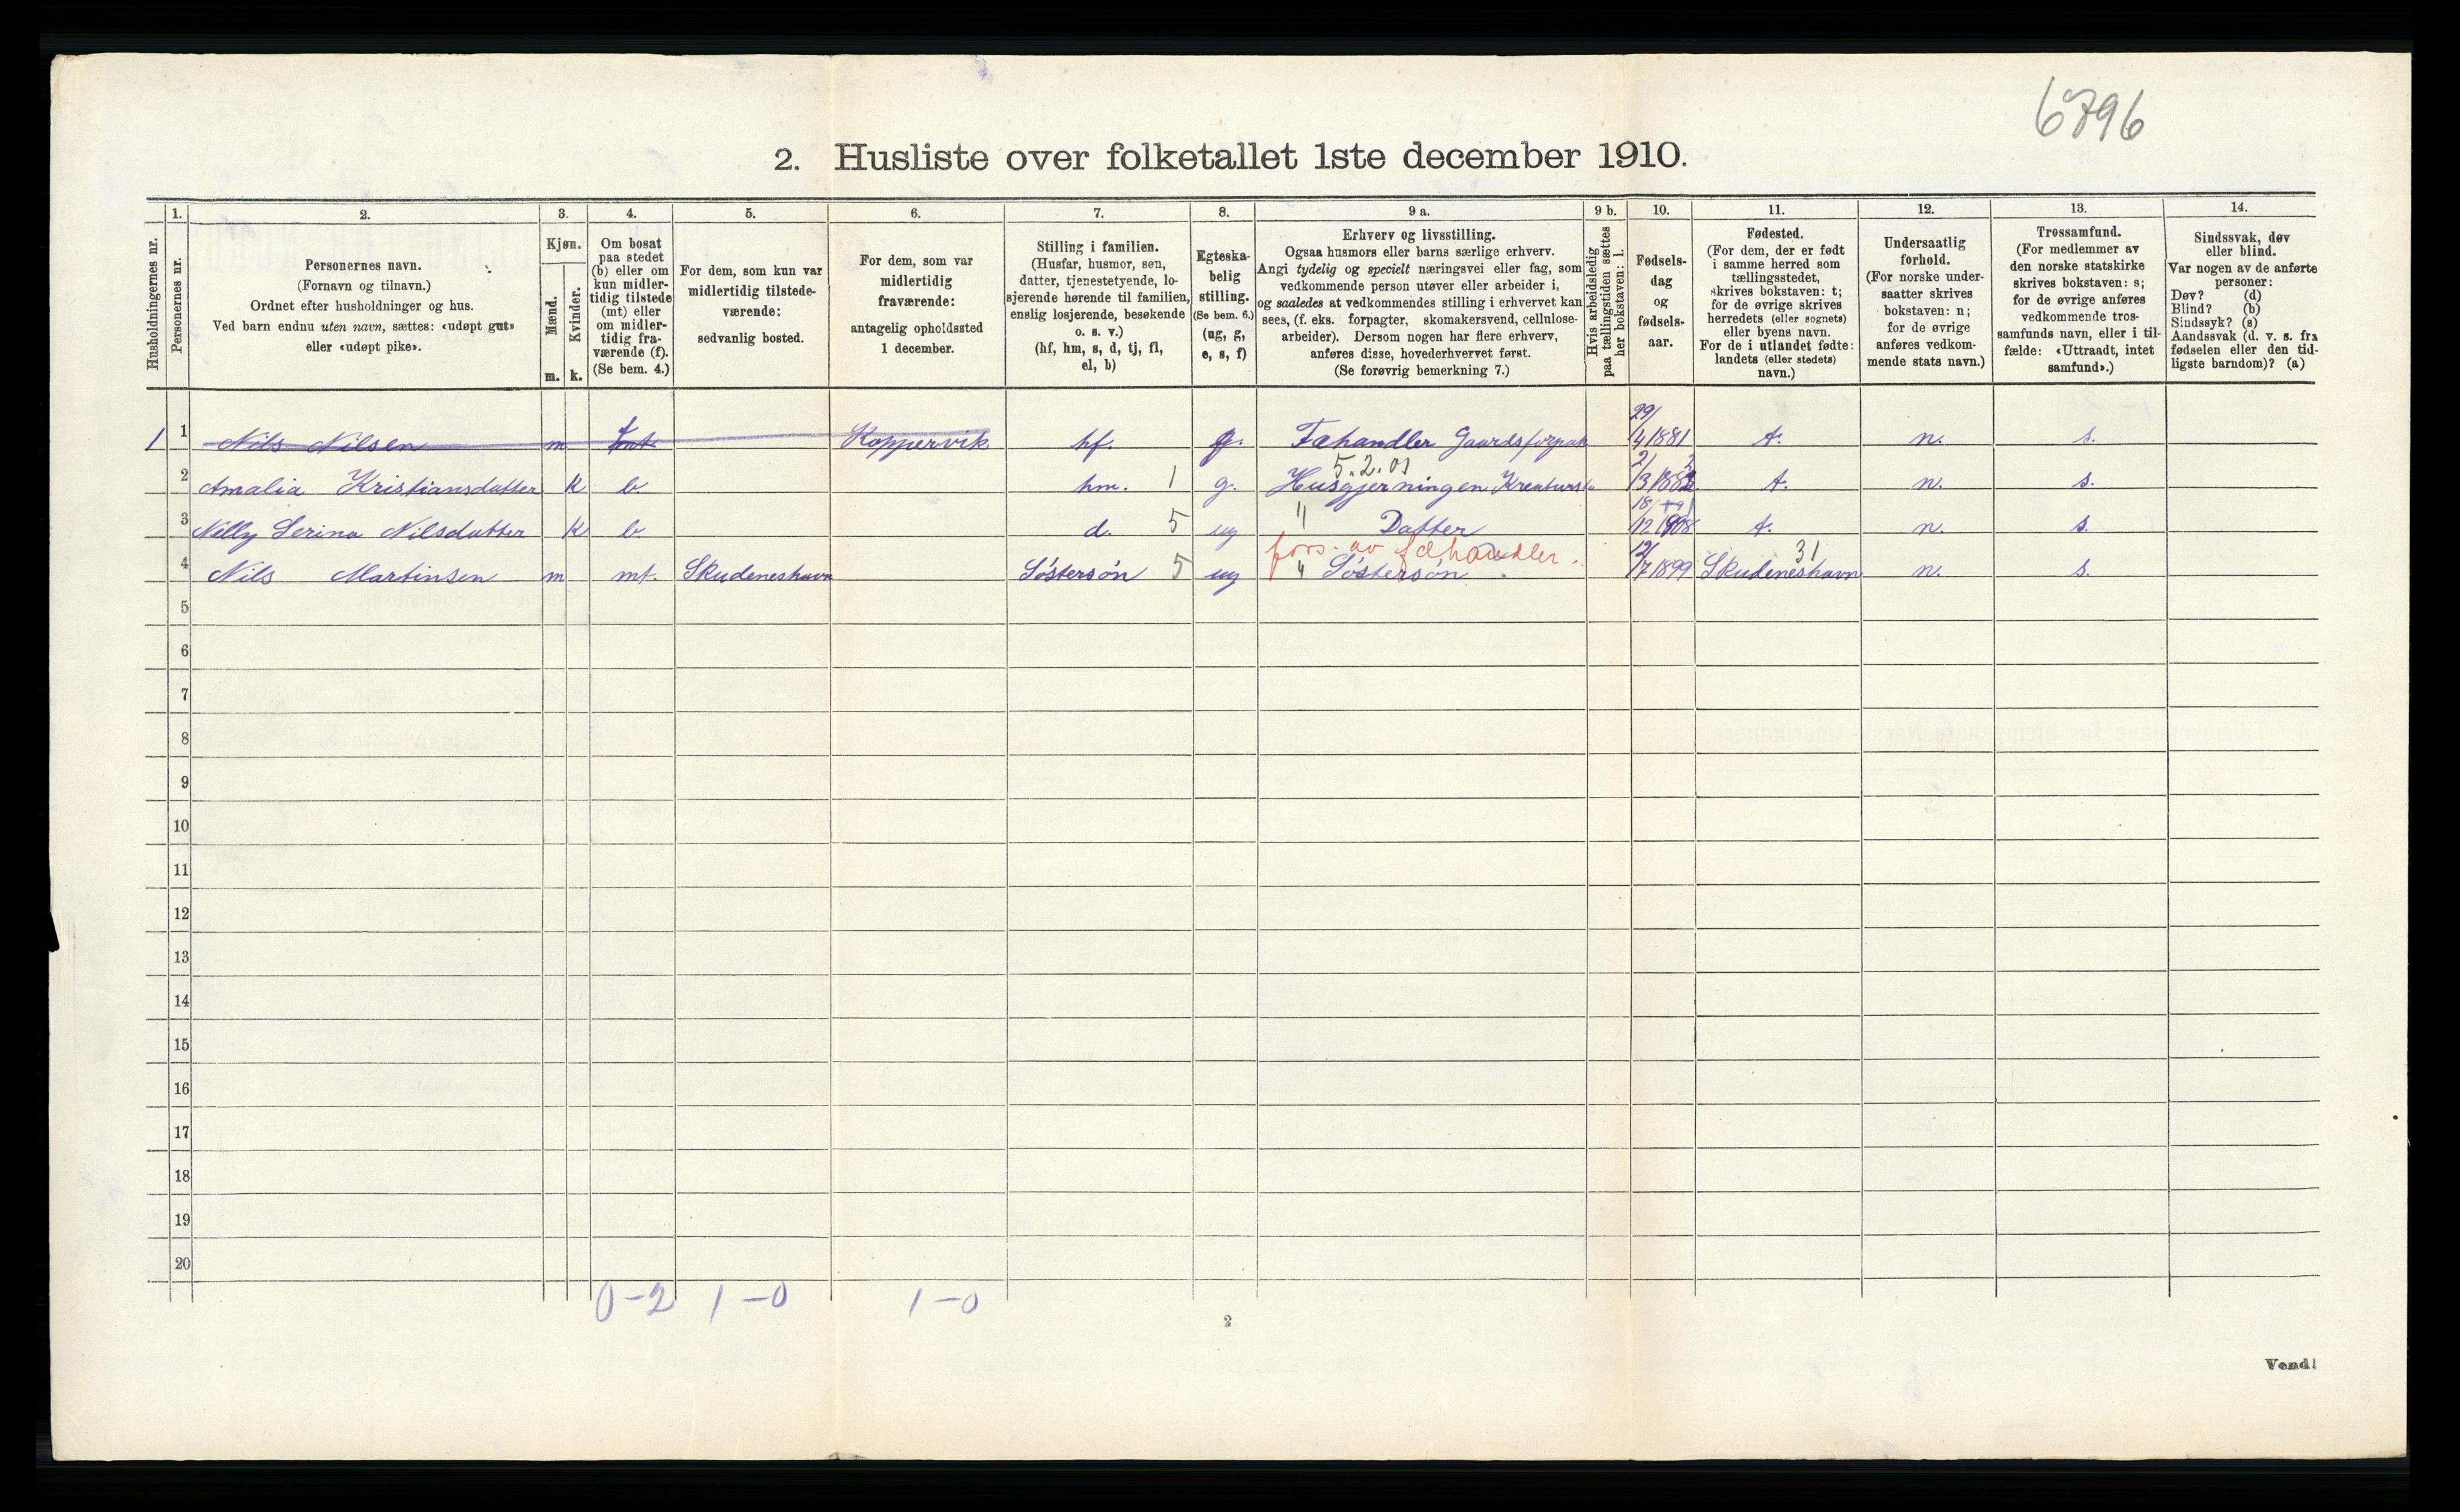 6796
2. Husliste over folketallet 1ste december 1910.
Husholdningernes nr.
1.
Personernes nr.
2.
Personernes navn.
(Fornavn og tilnavn.)
Ordnet efter husholdninger og hus.
Ved barn endnu uten navn, sættes: «udøpt gut»
eller «udøpt pike».
3.
Kjøn.
Mænd.
m.
Kvinder.
k.
4.
Om bosat
paa stedet
(b) eller om
kun midler-
tidig tilstede
(mt) eller
om midler-
tidig fra-
værende (f).
(Se bem. 4.)
5.
For dem, som kun var
midlertidig tilstede-
værende:
sedvanlig bosted.
6.
For dem, som var
midlertidig
fraværende:
antagelig opholdssted
1 december.
7.
Stilling i familien.
(Husfar, husmor, søn,
datter, tjenestetyende, lo-
sjerende hørende til familien,
enslig losjerende, besøkende
o. s. v.)
(hf, hm, s, d, tj, fl,
el, b)
8.
Egteska-
belig
stilling.
(Se bem. 6.)
(ug, g,
e, s, f)
9 a.
Erhverv og livsstilling.
Ogsaa husmors eller barns særlige erhverv.
Angi tydelig og specielt næringsvei eller fag, som
vedkommende person utøver eller arbeider i,
og saaledes at vedkommendes stilling i erhvervet kan
sees, (f. eks. forpagter, skomakersvend, cellulose-
arbeider). Dersom nogen har flere erhverv,
anføres disse, hovederhvervet først.
(Se forøvrig bemerkning 7.)
9 b.
Hvis arbeidsledig
paa tællingstiden sættes
her bokstaven: l.
10.
Fødsels-
dag
og
fødsels-
aar.
11.
Fødested.
(For dem, der er født
i samme herred som
tællingsstedet,
skrives bokstaven: t;
for de øvrige skrives
herredets (eller sognets)
eller byens navn.
For de i utlandet fødte:
landets (eller stedets)
navn.)
12.
Undersaatlig
forhold.
(For norske under-
saatter skrives
bokstaven: n;
for de øvrige
anføres vedkom-
mende stats navn.)
13.
Trossamfund.
(For medlemmer av
den norske statskirke
skrives bokstaven: s;
for de øvrige anføres
vedkommende tros-
samfunds navn, eller i til-
fælde: «Uttraadt, intet
samfund».)
14.
Sindssvak, døv
eller blind.
Var nogen av de anførte
personer:
Døv? (d)
Blind? (b)
Sindssyk? (s)
Aandssvak (d. v. s. fra
fødselen eller den tid-
ligste barndom)? (a)
1 1 Nils Nilsen m Koppervik hf. g. Fæhandler Gaardsforpak 29/4 1881 t. n. s.
5.2.01
2 Amalia Kristiansdatter k b. hm. 1 g. Husgjerningen Kreaturst t. n. s.
3 Nelly Serina Nilsdatter k b d. 5 ug " Datter 18/12 1908 t. n. s.
fors. av fæhandler.
4 Nils Martinsen m mt. Skudeneshavn Søstersøn 5 ug " Søstersøn 12/7 1899 Skudeneshavn 31 n. s.
5
6
7
8
9
10
11
12
13
14
15
16
17
18
19
20
0-2 1-0 1-0
2
Vend!